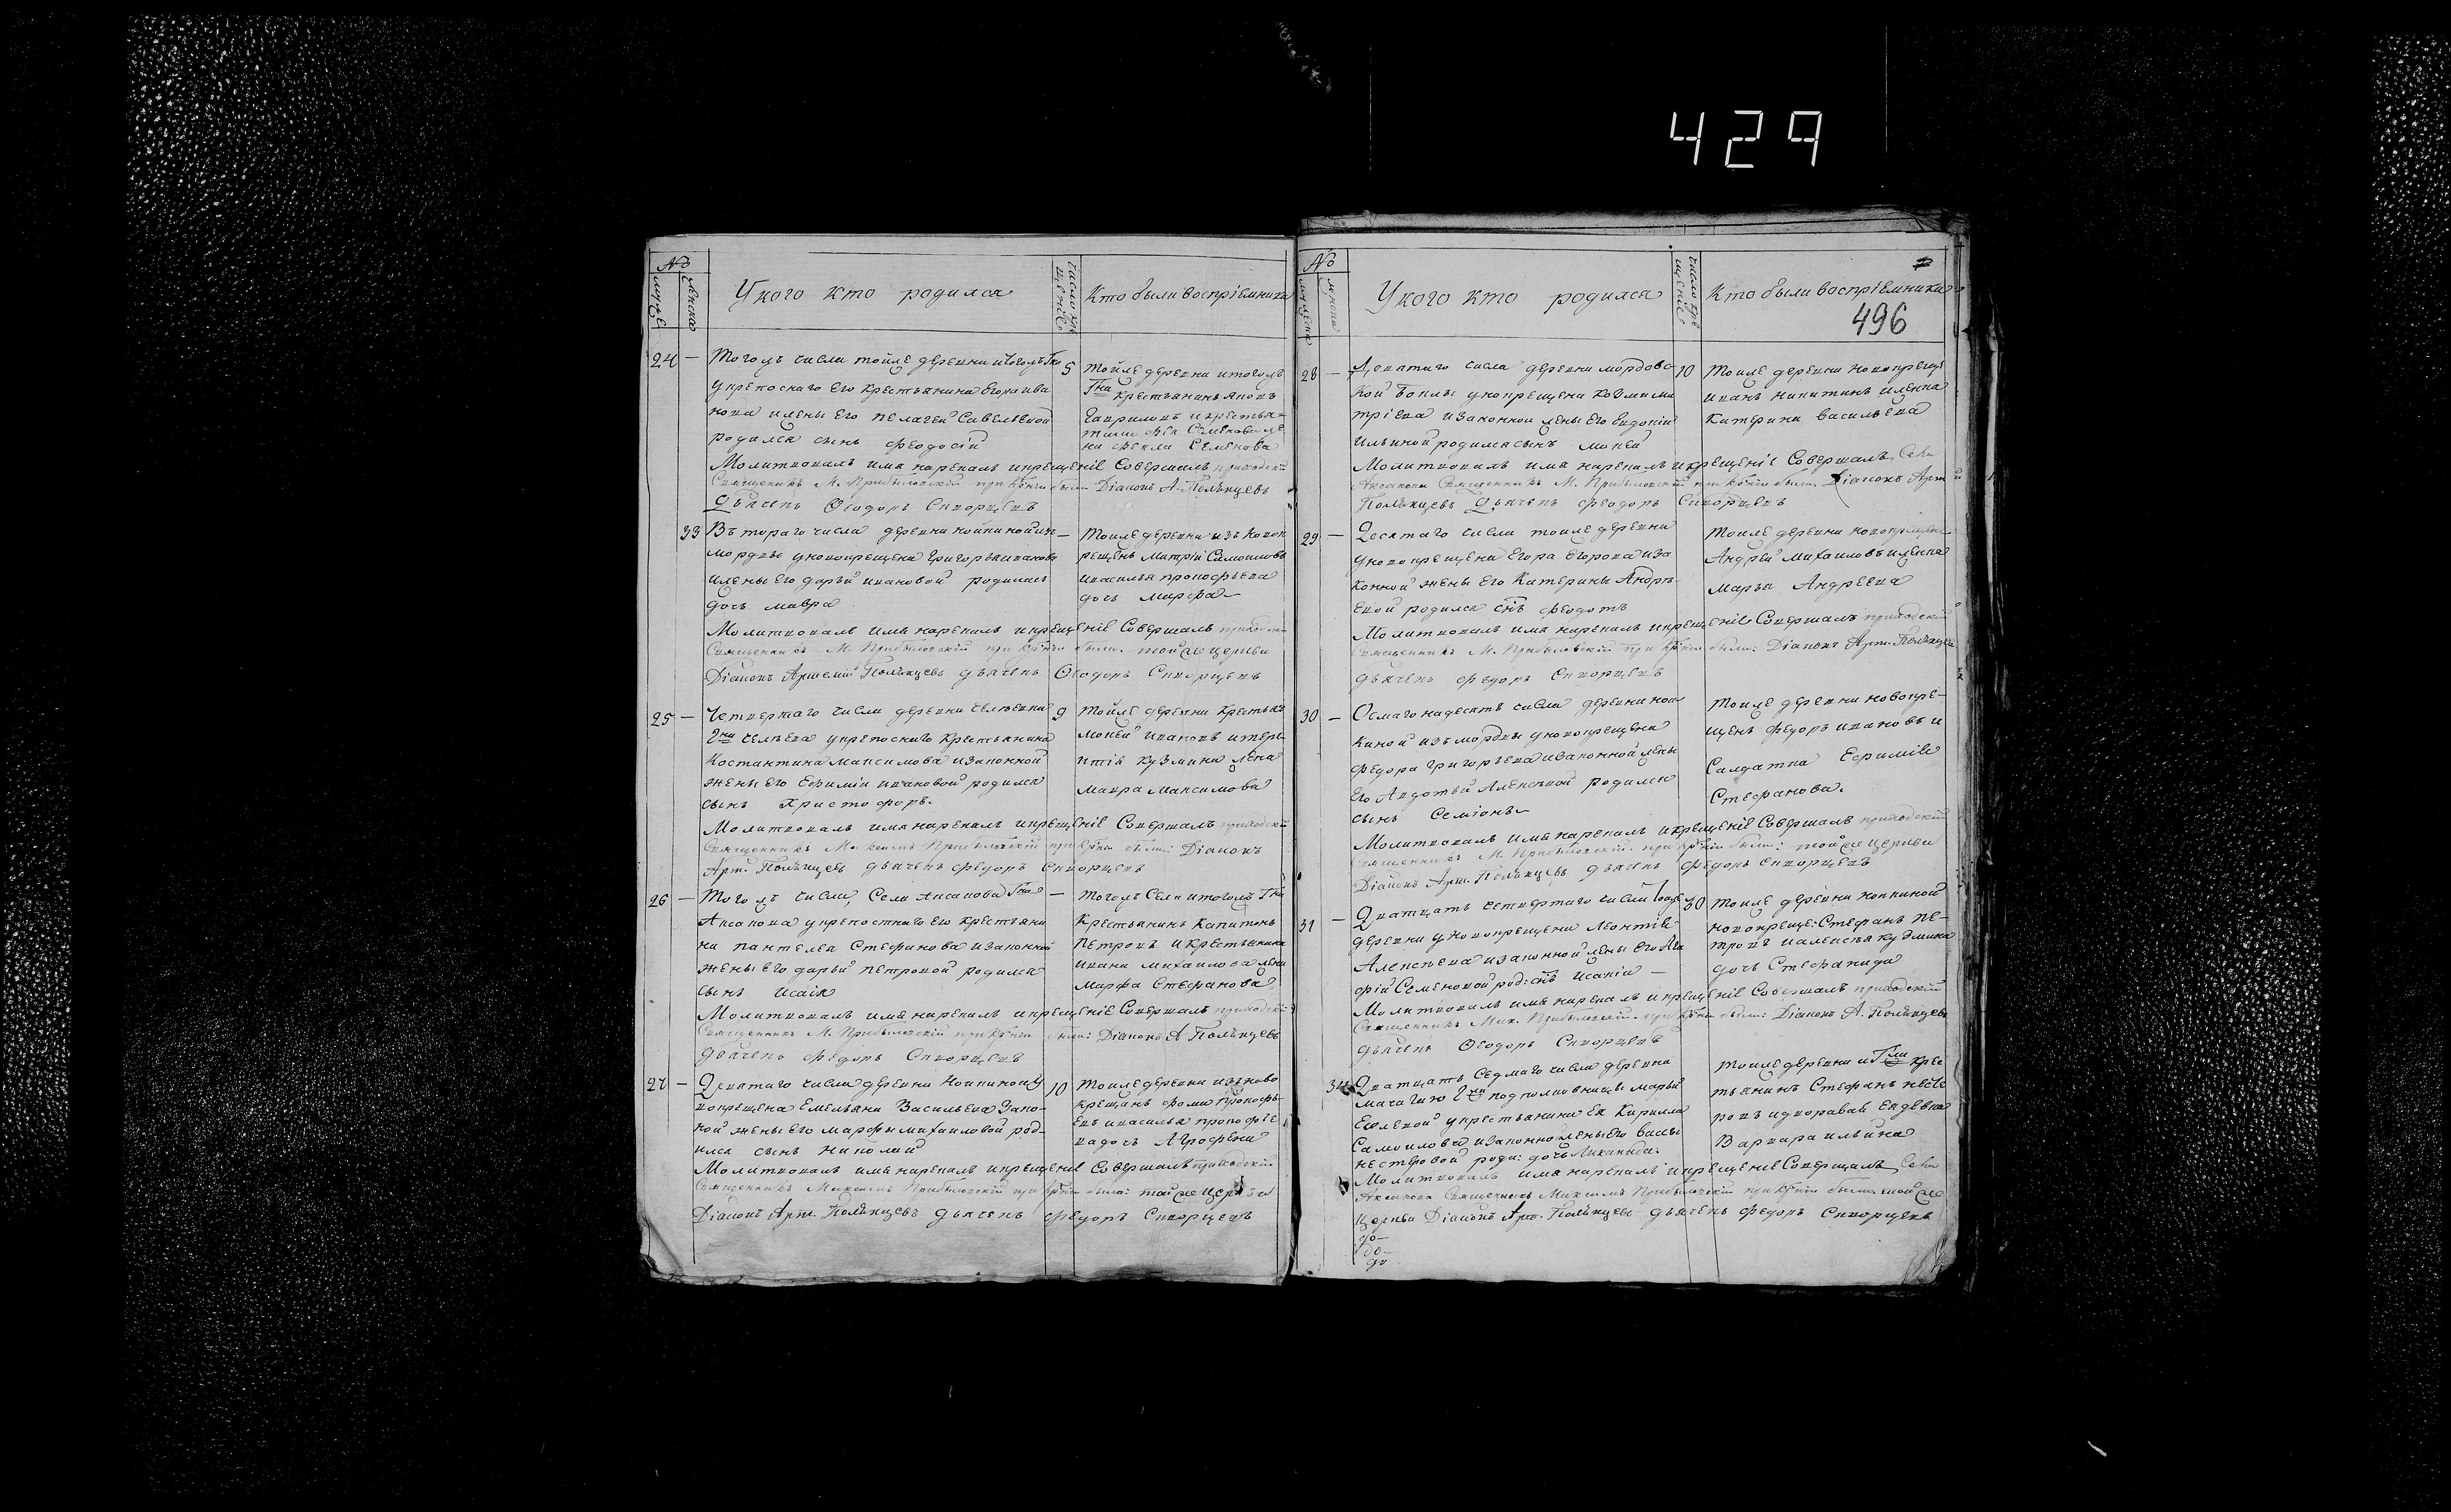 429
№
У кого кто родился
Кто были воспріемники
24 — Тогожъ числа тойже деревни итогожъ Гна
5
укрепоснаго его крестьянина Егора ива
нова ижены его пелагеи Савельевой
родился сынъ Феодосій
Тойже деревни итогожъ
Гна крестьянинъ
Гавриловъ икрестья-
на фекла Семенова
Молитвовалъ имя нарекалъ икрещеніе Совершалъ приходскій
Священникъ М. Прибыловскій при кр҃нiи были Діаконъ А. Полянцевъ
Дьячекъ Ѳеодоръ Скворцевъ
33 Втораго числа деревни
мордвы уновокрещена Григорья иванова
ижены его дарьи ивановой родилась
дочь мавра
—
Тойже деревни изъ новок
рещенъ митрій Самойловъ
ивасилья прокофьева
дочь марфа
Молитвовалъ имя нарекалъ икрещеніе Совершалъ приходскій
Священникъ М. Прибыловскій при кр҃нiи были. тойже церкви
Діаконъ Артемій Полянцевъ дьячекъ Ѳеодоръ Скворцевъ
25 — Четвертаго числа деревни
укрепоснаго крестьянина
Костантина максимова изаконной
жены его Ефиміи ивановой родился
сынъ Христофоръ.
9
Тойже деревни крестьян
мокей ивановъ итере-
нтія кузмина жена
мавра максимова
Молитвовалъ имя нарекалъ икрещеніе Совершалъ приходскій
Священникъ Максимъ Прибыловскій при кр҃нiи были: Діаконъ
Арт. Полянцевъ дьячекъ Федоръ Скворцевъ
26 — Тогожъ числа, Села Аксакова Гна
Аксакова укрепостнаго его крестьяни
на пантелея Стефанова изаконной
жены его дарьи петровой родился
сынъ Исаія
—
Тогожъ Села итогожъ Гна
Крестьянинъ Капитонъ
Петровъ икрестьянина
ивана михайлова жена
Марфа Стефанова
Молитвовалъ имя нарекалъ икрещеніе Совершалъ приходскій
Священникъ М. Прибыловскій при кр҃нiи были: Діаконъ А Полянцевъ
дьячекъ Федоръ Скворцевъ
27 — Девятаго числа деревни Нойкиной у
вокрещена Емельяна Васильева Зако-
ной жены его марфы михайловой род-
ился сынъ николай
10
Тойже деревни изъ ново
крещенъ фома прокофь-
евъ ивасилья прокофье
ва дочь Агрофена
Молитвовалъ имя нарекалъ икрещеніе Совершалъ приходскій
Священникъ Максимъ Прибыловскій при кр҃нiи были: тойже церкви
Діаконъ Арт. Полянцевъ дьячекъ Федоръ Скворцевъ
№
У кого кто родился
Кто были воспріемники
496
28 — Девятаго числа деревни мордовс-
кой Боклы уновокрещена козмы ми
тріева изаконной жены его Евдокіи
ильиной родился сынъ мокей
10
Тойже деревни новокрещ
иванъ никитинъ иженка
катерина васильева
Молитвовалъ имя нарекалъ икрещеніе Совершалъ Села
Аксакова Священникъ М. Прибыловскій при кр҃нiи были. Діаконъ Арт
Полянцевъ Дьячекъ Феодоръ Скворцевъ
29 — Десятаго числа тойже деревни
уновокрещена Егора Егорова иза
конной жены его Катерины Андре-
евой родился сн҃ъ феодотъ
Тойже деревни новокрещенъ
Андрей Михайловъ иженка
марья Андреева
Молитвовалъ имя нарекалъ икрещеніе Совершалъ приходскій
Священникъ М. Прибыловскій при кр҃нiи были: Діаконъ Арт. Полянцевъ
дьячекъ Федоръ Скворцевъ
30 — Осмагонадесять числа деревни ной
киной изъ мордвы уновокрещена
Федора Григорьева изаконной жены
его Авдотьи Алексѣвой родился
сынъ Семіонъ
Тойже деревни новокре-
щенъ Федоръ ивановъ и
Салдатка Ефимія
Стефанова.
Молитвовалъ имя нарекалъ икрещеніе Совершалъ приходскій
Священникъ М. Прибыловскій. при кр҃нiи были: тойже церкви
Діаконъ Арт. Полянцевъ дьячекъ Федоръ Скворцевъ
31 — Дватцать четвертаго числа тояж
деревни уновокрещена Леонтія
Алексѣева изаконной жены его Ага
фіи Семеновой род: сн҃ъ исакій —
30
Тойже деревни нойкиной
новокреще: Стефанъ пе-
тровъ иалексѣя кузмина
дочь Стефанида
Молитвовалъ имя нарекалъ икрещеніе Совершалъ приходскій
Священникъ Мак. Прибыловскій. при кр҃нiи были: Діаконъ А. Полянцевъ
дьячекъ Ѳеодоръ Скворцевъ
34 Дватцать Седмаго числа деревни
подполковницы марьи
укрестьянина ея Кирилла
Самойлова изаконной жены его васы
нестеровой роди: дочь
Тойже деревни и Гжи крес
тьянинъ Стефанъ несте
ровъ идворовая
Варвара ильина
Молитвовалъ имя нарекалъ икрещеніе Совершалъ Села
Аксакова Священникъ Максимъ Прибыловскій при кр҃нiи были тойже
Церкви Діаконъ Арт. Полянцевъ дьячекъ Федоръ Скворцевъ